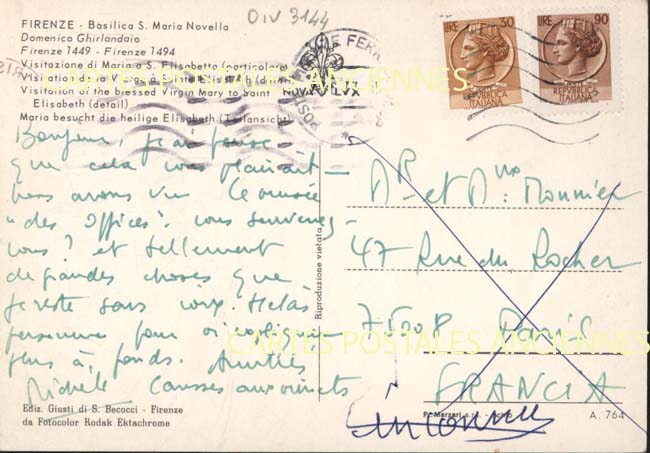 DIV 3144
FIRENZE - Basilica S. Maria Novella
Domenico Ghirlandaio
Firenze 1449 - Firenze 1494
Visitazione di Maria a S. Elisabetta (particolare)
Visitation de la Vierge à Sainte Elisabeth
Visitation of the blessed Virgin Mary to Saint
Elisabeth (detail)
Maria besucht die heilige Elisabeth (Teilansicht)
LIRE 30
REPVBBLICA
ITALIANA
LIRE 90
REPVBBLICA
ITALIANA
NOVA LVX
Bonjour, j'ai pensé
que cela vous plairait -
nous avons vu le musée
"des Offices". vous souvenez-
vous? et tellement
de grandes choses que
je reste sans voix. Hélas
personne pour
plus à fond. Amitiés
Michèle
Mr et Mme Monnier
47 Rue du Rocher
75008 Paris
FRANCIA
inconnu
Riproduzione vietata
Ediz. Giusti di S. Becocci - Firenze
da Fotocolor Kodak Ektachrome
A. 764
CARTES POSTALES ANCIENNES
CARTES POSTALES ANCIENNES